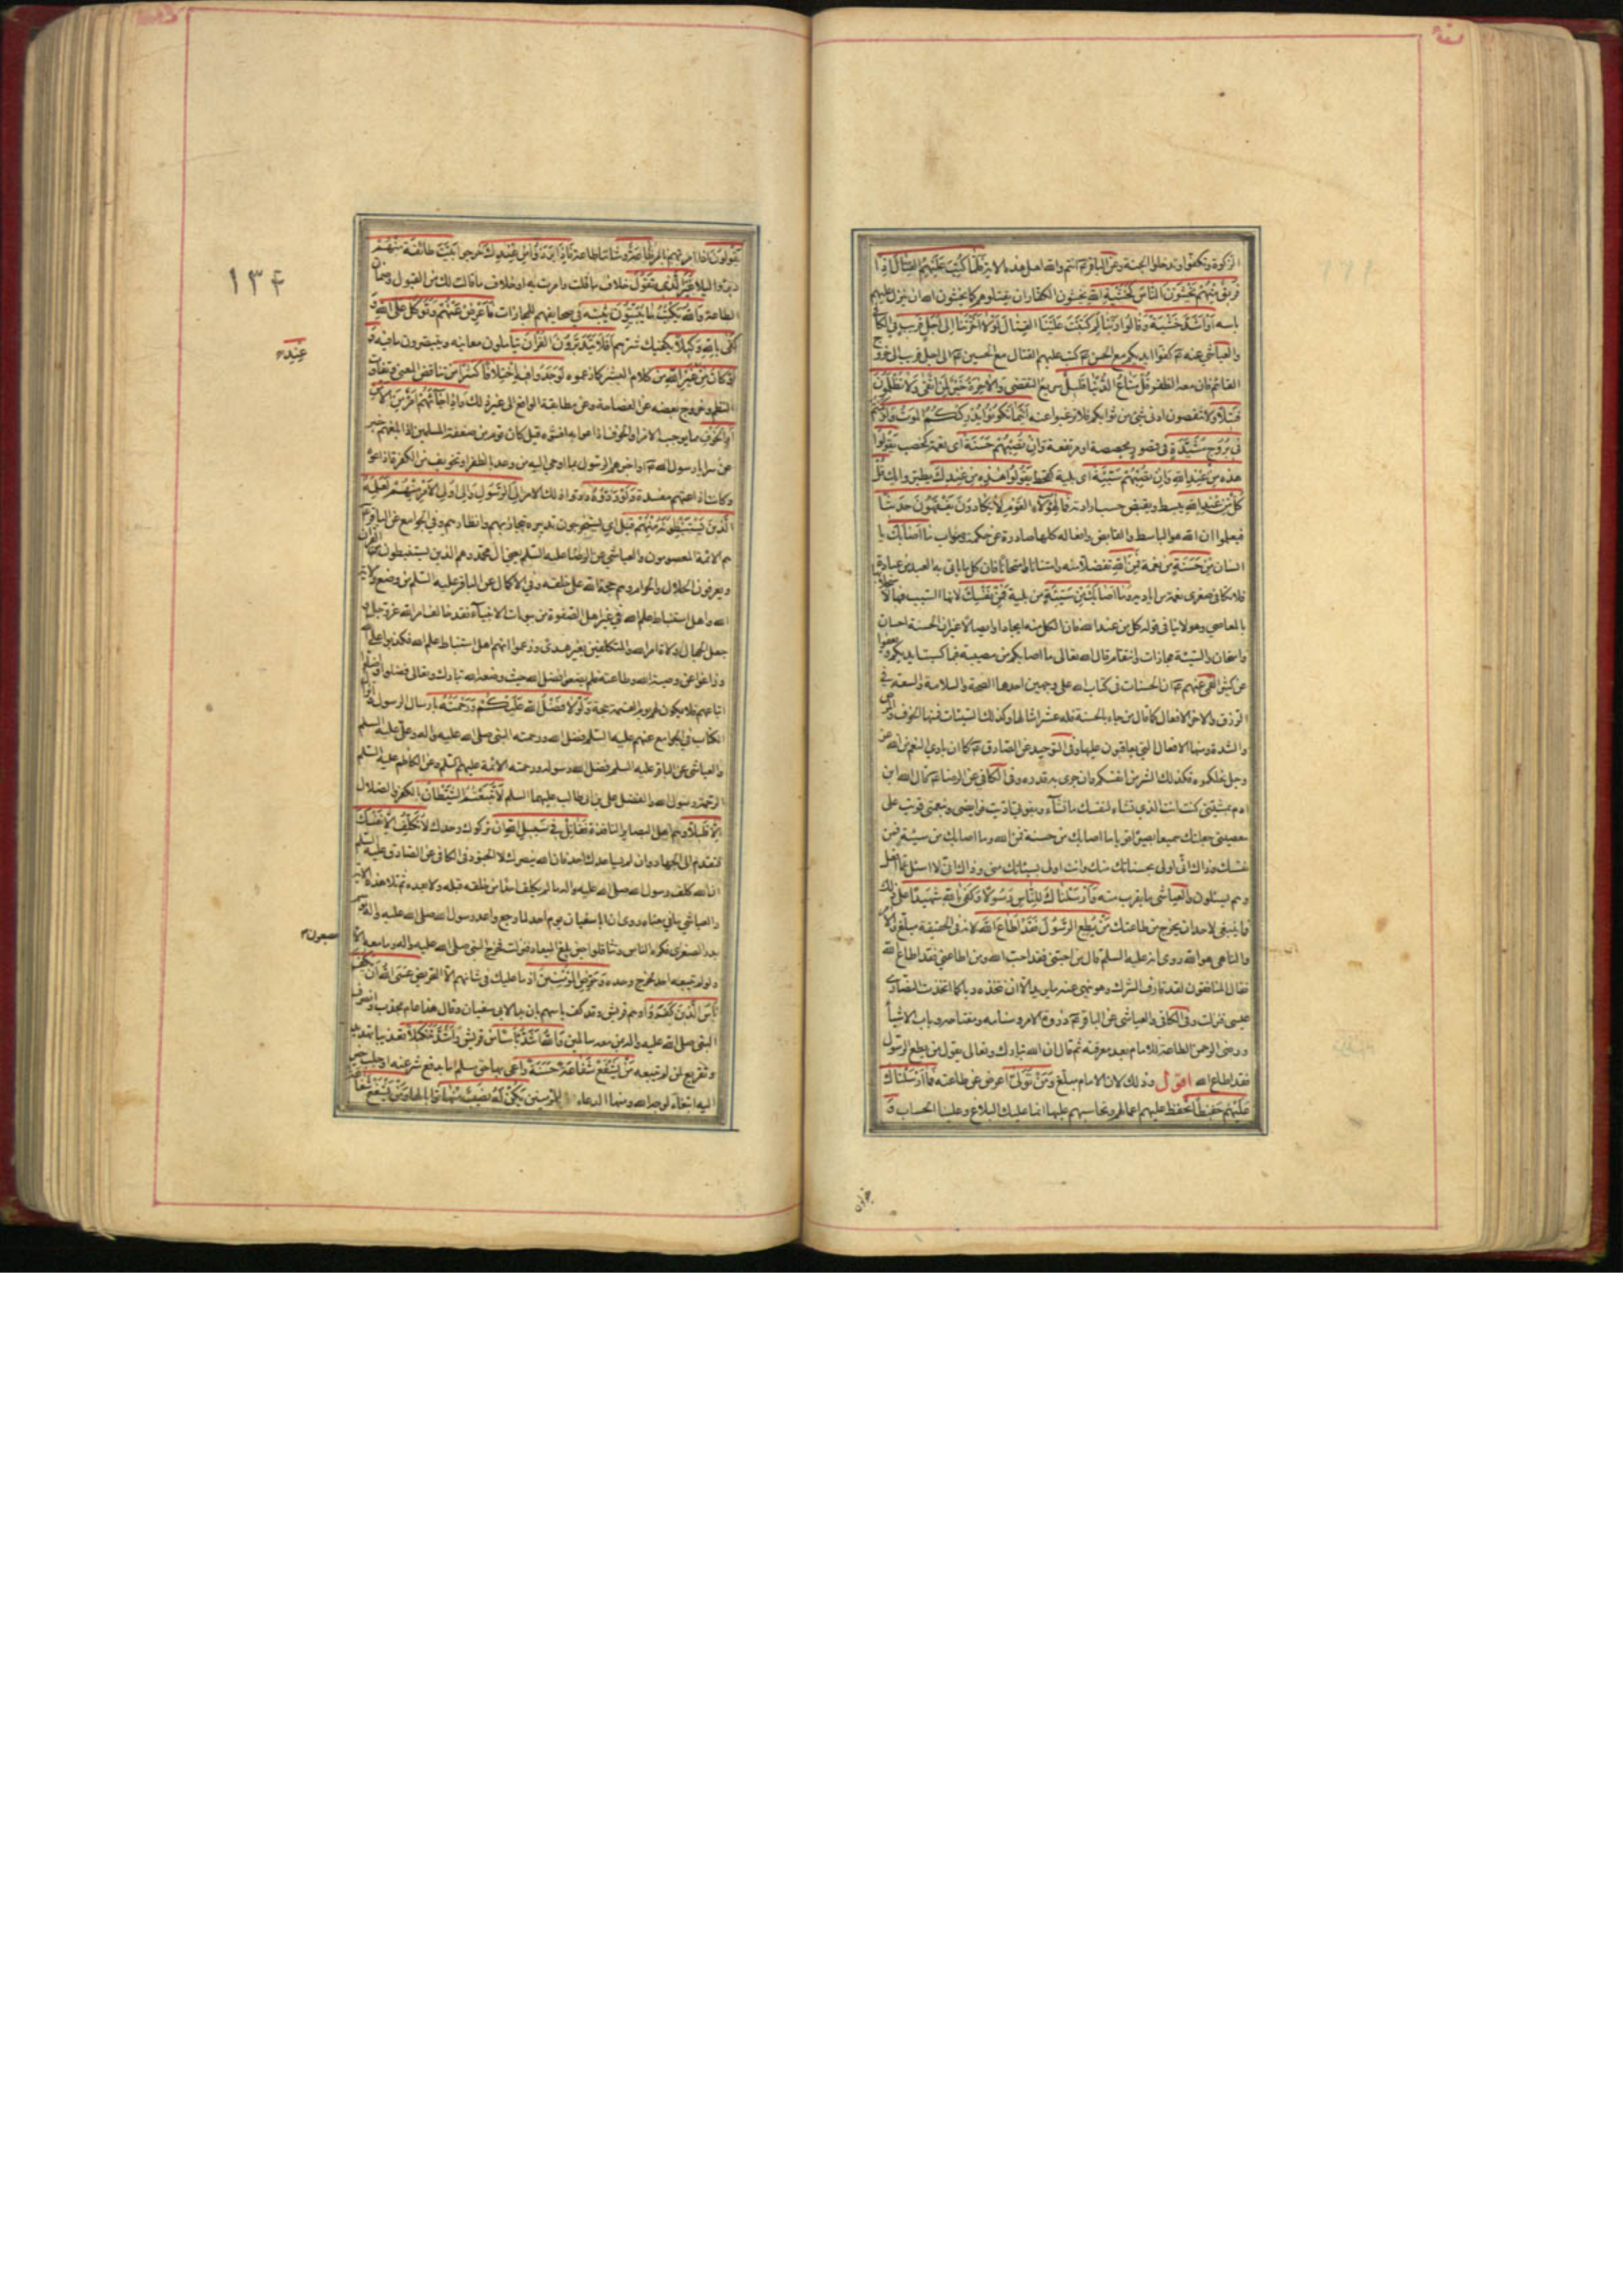 الزكوة وتكفوا وتدخلوا الجنة وعن الباقر ع انتم والله اهل هذه الاية فَلَمَّا كُتِبَ عَلَيْهِمُ القِتَالُ اِذَا
فَريقٌ مِنْهُمْ يَخْشَوْنَ النَّاسَ كَخَشْيَةِ اللهِ يخشون الكفار ان يقتلوهم كما يخشون الله ان ينزل عليهم
باسه اَوْ اَشَدَّ خَشْيَةً وَقَالُوا رَبَّنَا لِمَ كَتَبْتَ عَلَيْنَا القِتَالَ لَوْلَا اَخَّرْتَنَا اِلى اَجَلٍ قَريبٍ في الكافي
والعياشي عنه ع كفوا ايديكم مع الحسن ع كتب عليهم القتال مع الحسين ع الى اجل قريب الى خروج
القائم فان معه الظفر قُلْ مَتَاعُ الدُّنْيَا قَليلٌ سريع التقضي وَالْاخِرَةُ خَيْرٌ لِمَنِ اتَّقى وَلَا تُظْلَمُونَ
فَتيلًا ولا تنقصون ادنى شئ من ثوابكم فلا ترغبوا عنه اَيْنَمَا تَكُونُوا يُدْرِكْكُمُ المَوْتُ وَلَوْ كُنْتُمْ
في بُرُوجٍ مُشَيَّدَةٍ في قصور مجصصة او مرتفعة وَاِنْ تُصِبْهُمْ حَسَنَةٌ اى نعمة كخصب يَقُولُوا
هذِه مِنْ عِنْدِ اللهِ وَاِنْ تُصِبْهُمْ سَيِّئَةٌ اى بلية كقحط يَقُولُوا هذِه مِنْ عِنْدِكَ يطيروا بك قُلْ
كُلٌّ مِنْ عِنْدِ اللهِ يبسط ويقبض حسب ارادته فَمَالِ هؤُلَاءِ القَوْمِ لَا يَكَادُونَ يَفْقَهُونَ حَديثًا
فيعلموا ان الله هو الباسط والقابض وافعاله كلها صادرة عن حكمة وصواب مَا اَصَابَكَ يا
انسان مِنْ حَسَنَةٍ من نعمة فَمِنَ اللهِ تفضلا منه وامتنانا وامتحانا فان كل ما ياتى به العبد من عبادة
فلا يكافى صغرى نعمة من اياديه وَمَا اَصَابَكَ مِنْ سَيِّئَةٍ من بلية فَمِنْ نَفْسِكَ لانها السبب فيها لاستجلابها
بالمعاصي وهو لا ينافى قوله كل من عند الله فان الكل منه ايجادا وايصالا غير ان الحسنة احسان
وامتحان والسيئة مجازات وانتقام قال الله تعالى ما اصابكم من مصيبة فبما كسبت ايديكم ويعفوا
عن كثير القمى عنهم ع ان الحسنات فى كتاب الله على وجهين احدهما الصحة والسلامة والسعة في
الرزق والاخر الافعال كما قال من جاء بالحسنة فله عشر امثالها وكذلك السيئات فمنها الخوف والمرض
والشدة ومنها الافعال التي يعاقبون عليها وفى التوحيد عن الصادق ع كما ان بادى النعم من الله عز
وجل نحلكموه فكذلك الشر من انفسكم وان جرى به قدره وفى الكافي عن الرضا ع قال الله ابن
ادم بمشيتى كنت انت الذي تشاء لنفسك ما تشاء وبقوتى اديت فرايضى وبنعمتى قويت على
معصيتى جعلتك سميعا بصيرا قويا ما اصابك من حسنة فمن الله وما اصابك من سيئة فمن
نفسك وذاك انى اولى بحسناتك منك وانت اولى بسيئاتك منى وذاك انى لا اسئل عما افعل
وهم يسئلون والعياشى ما يقرب منه وَاَرْسَلْنَاكَ لِلنَّاسِ رَسُولًا وَكَفى بِاللهِ شَهيدًا على ذلك
فما ينبغى لاحد ان يخرج من طاعتك مَنْ يُطِعِ الرَّسُولَ فَقَدْ اَطَاعَ اللهَ لانه فى الحقيقة مبلغ والامر
والناهى هو الله روى انه عليه السلم قال من احبنى فقد احب الله ومن اطاعنى فقد اطاع الله
فقال المنافقون لقد قارف الشرك وهو ينهى عنه ما يريد الا ان نتخذه ربا كما اتخذت النصارى
عيسى فنزلت وفى الكافي والعياشى عن الباقر ع ذروة الامر وسنامه ومفتاحه وباب الاشياء
ورضى الرحمن الطاعة للامام بعد معرفته ثم قال ان الله تبارك وتعالى يقول من يطع الرسول
فقد اطاع الله اقول وذلك لان الامام مبلغ وَمَنْ تَوَلّى اعرض عن طاعته فَمَا اَرْسَلْنَاكَ
عَلَيْهِمْ حَفيظًا تحفظ عليهم اعمالهم وتحاسبهم عليها انما عليك البلاغ وعلينا الحساب وَ
١٣٤
يَقُولُونَ اذا امرتهم بامر طَاعَةٌ امرنا وشاننا طاعة فَاِذَا بَرَزُوا مِنْ عِنْدِكَ خرجوا بَيَّتَ طَائِفَةٌ مِنْهُمْ
دبروا ليلا غَيْرَ الَّذى تَقُولُ خلاف ما قلت وامرت به او خلاف ما قالت لك من القبول وضمان
الطاعة وَاللهُ يَكْتُبُ مَا يُبَيِّتُونَ يثبته في صحايفهم للمجازات فَاَعْرِضْ عَنْهُمْ وَتَوَكَّلْ عَلَى اللهِ وَ
كَفى بِاللهِ وَكيلًا يكفيك شرهم اَفَلَا يَتَدَبَّرُونَ القُرْانَ يتاملون معانيه ويتبصرون ما فيه وَ
لَوْ كَانَ مِنْ عِنْدِ غَيْرِ اللهِ من كلام البشر كما زعموه لَوَجَدُوا فيهِ اخْتِلَافًا كَثيرًا من تناقض المعنى وتفاوت
النظم وخروج بعضه عن الفصاحة وعن مطابقة الواقع الى غير ذلك وَاِذَا جَاءَهُمْ اَمْرٌ مِنَ الْاَمْنِ
اَوِ الخَوْفِ مما يوجب الامن او الخوف اذاعوا به افشوه قيل كان قوم من ضعفة المسلمين اذا بلغهم خبر
عن سرايا رسول الله ص او اخبرهم الرسول بما اوحى اليه من وعد بالظفر او تخويف من الكفرة اذاعوا
وكانت اذاعتهم مفسدة وَلَوْ رَدُّوهُ ردوا ذلك الامر اِلَى الرَّسُولِ وَاِلى اُولِى الْاَمْرِ مِنْهُمْ لَعَلِمَهُ
الَّذينَ يَسْتَنْبِطُونَهُ مِنْهُمْ قيل اى يستخرجون تدبيره بتجاربهم وانظارهم وفى الجوامع عن الباقر ع
هم الائمة المعصومون والعياشي عن الرضا عليه السلم يعنى ال محمد وهم الذين يستنبطون من القران
ويعرفون الحلال والحرام وهم حجة الله على خلقه وفى الاكمال عن الباقر عليه السلم من وضع ولاية
الله واهل استنباط علم الله في غير اهل الصفوة من بيوتات الانبياء فقد خالف امر الله عز وجل و
جعل الجهال ولاة امر الله والمتكلفين بغير هدى وزعموا انهم اهل استنباط علم الله فكذبوا على الله
وزاغوا عن وصية الله وطاعته فلم يضعوا فضل الله حيث وضعه الله تبارك وتعالى فضلوا واضلوا
اتباعهم فلا يكون لهم يوم القيمة حجة وَلَوْلَا فَضْلُ اللهِ عَلَيْكُمْ وَرَحْمَتُهُ بارسال الرسول وانزال
الكتاب فى الجوامع عنهم عليهم السلم فضل الله ورحمته النبى صلى الله عليه واله وعلى عليه السلم
والعياشى عن الباقر عليه السلم فضل الله رسوله ورحمته الائمة عليهم السلم وعن الكاظم عليه السلم
الرحمة رسول الله والفضل على بن ابى طالب عليهما السلم لَاتَّبَعْتُمُ الشَّيْطَانَ بالكفر والضلال
اِلَّا قَليلًا وهم اهل البصاير النافذة فَقَاتِلْ في سَبيلِ اللهِ ان تركوك وحدك لَا تُكَلَّفُ اِلَّا نَفْسَكَ
فتقدم الى الجهاد وان لم يساعدك احد فان الله ينصرك لا الجنود فى الكافى عن الصادق عليه السلم
ان الله كلف رسول الله صلى الله عليه واله ما لم يكلف احدا من خلقه قبله ولا بعده ثم تلا هذه الاية
والعياشي ما فى معناه روى ان ابا سفيان يوم احد لما رجع واعد رسول الله صلى الله عليه واله موسم
بدر الصغرى فكره الناس وتثاقلوا حين بلغ الميعاد فنزلت فخرج النبى صلى الله عليه واله وما معه الا
سبعون
ولو لم يتبعه احد لخرج وحده وَحَرِّضِ المُؤْمِنينَ اذ ما عليك فى شانهم الا التحريض عَسَى اللهُ اَنْ يَكُفَّ
بَاْسَ الَّذينَ كَفَرُوا وهم قريش وقد كف باسهم بان بدا لابى سفيان وقال هذا عام مجدب وانصرف
النبى صلى الله عليه واله بمن معه سالمين وَاللهُ اَشَدُّ بَاْسًا من قريش وَاَشَدُّ تَنْكيلًا تعذيبا تهديد
وتقريع لمن لم يتبعه مَنْ يَشْفَعْ شَفَاعَةً حَسَنَةً راعى بها حق مسلم اما بدفع شر عنه او جلب خير
اليه ابتغاء لوجه الله ومنها الدعاء للمؤمنين يَكُنْ لَهُ نَصيبٌ مِنْهَا ثوابا لها وَمَنْ يَشْفَعْ شَفَاعَةً